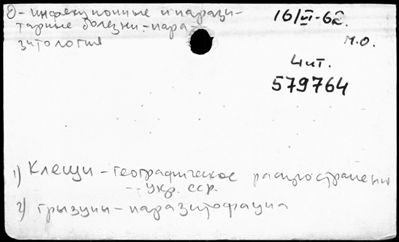 О-инфекционные и парази-
тарные болезни-пара-
зитология
16/VI-62.
М.О.
4 ит.
579764
1) Клещи - географическое распространение
-- укр. сср.
2) грызуны - паразитофауна